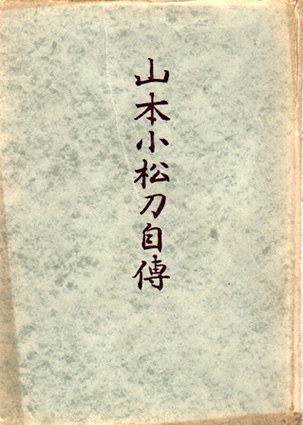 山本小松刀自傳